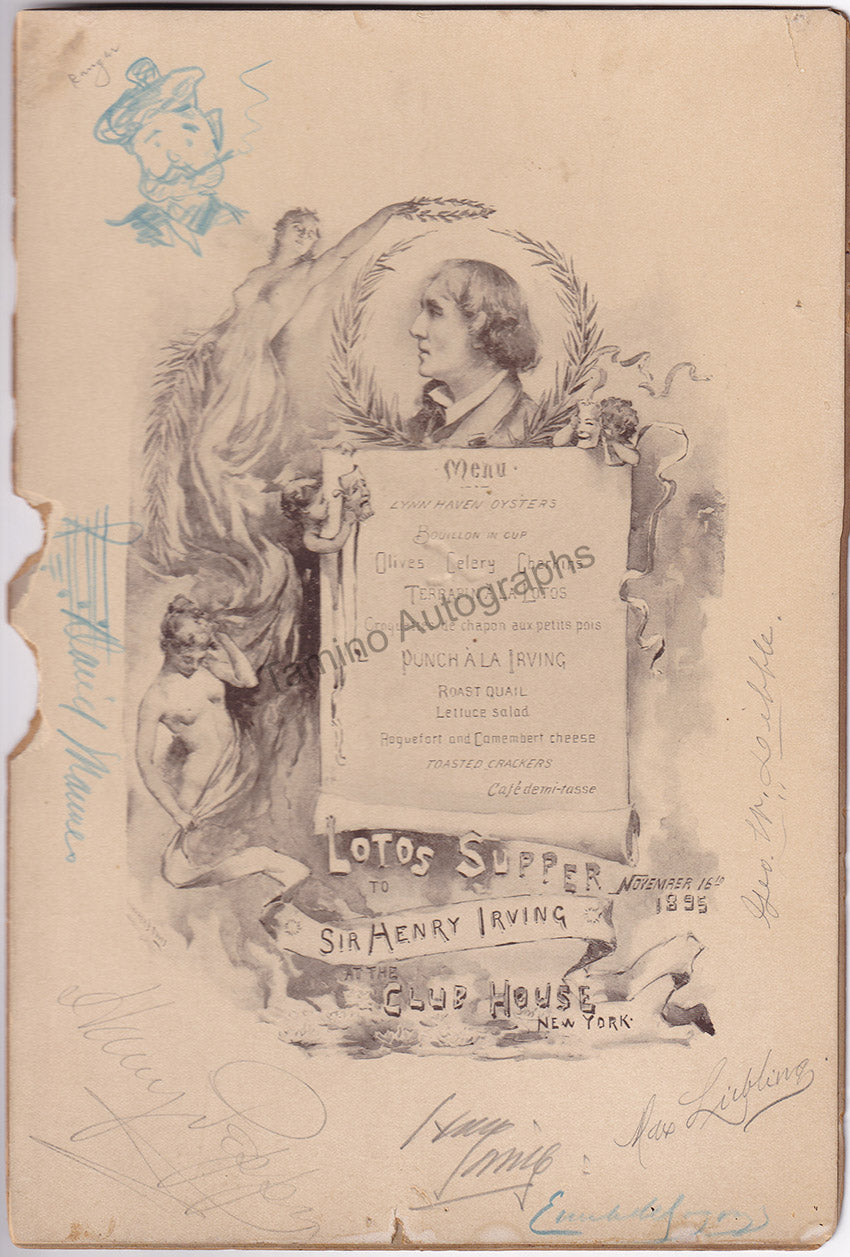 Menu.
LYNN HAVEN OYSTERS
BOUILLON IN CUP
Olives Celery Gherkins
TERRAPIN À LA LOTOS
Croquettes de chapon aux petits pois
PUNCH À LA IRVING
ROAST QUAIL
Lettuce salad
Roquefort and Camembert cheese
TOASTED CRACKERS
Café demi-tasse
LOTOS SUPPER
TO
NOVEMBER 16TH
1895
SIR HENRY IRVING
AT THE
CLUB HOUSE
NEW YORK.
Tamino Autographs
David Mannes
Geo. W. Dibble.
Max Liebling.